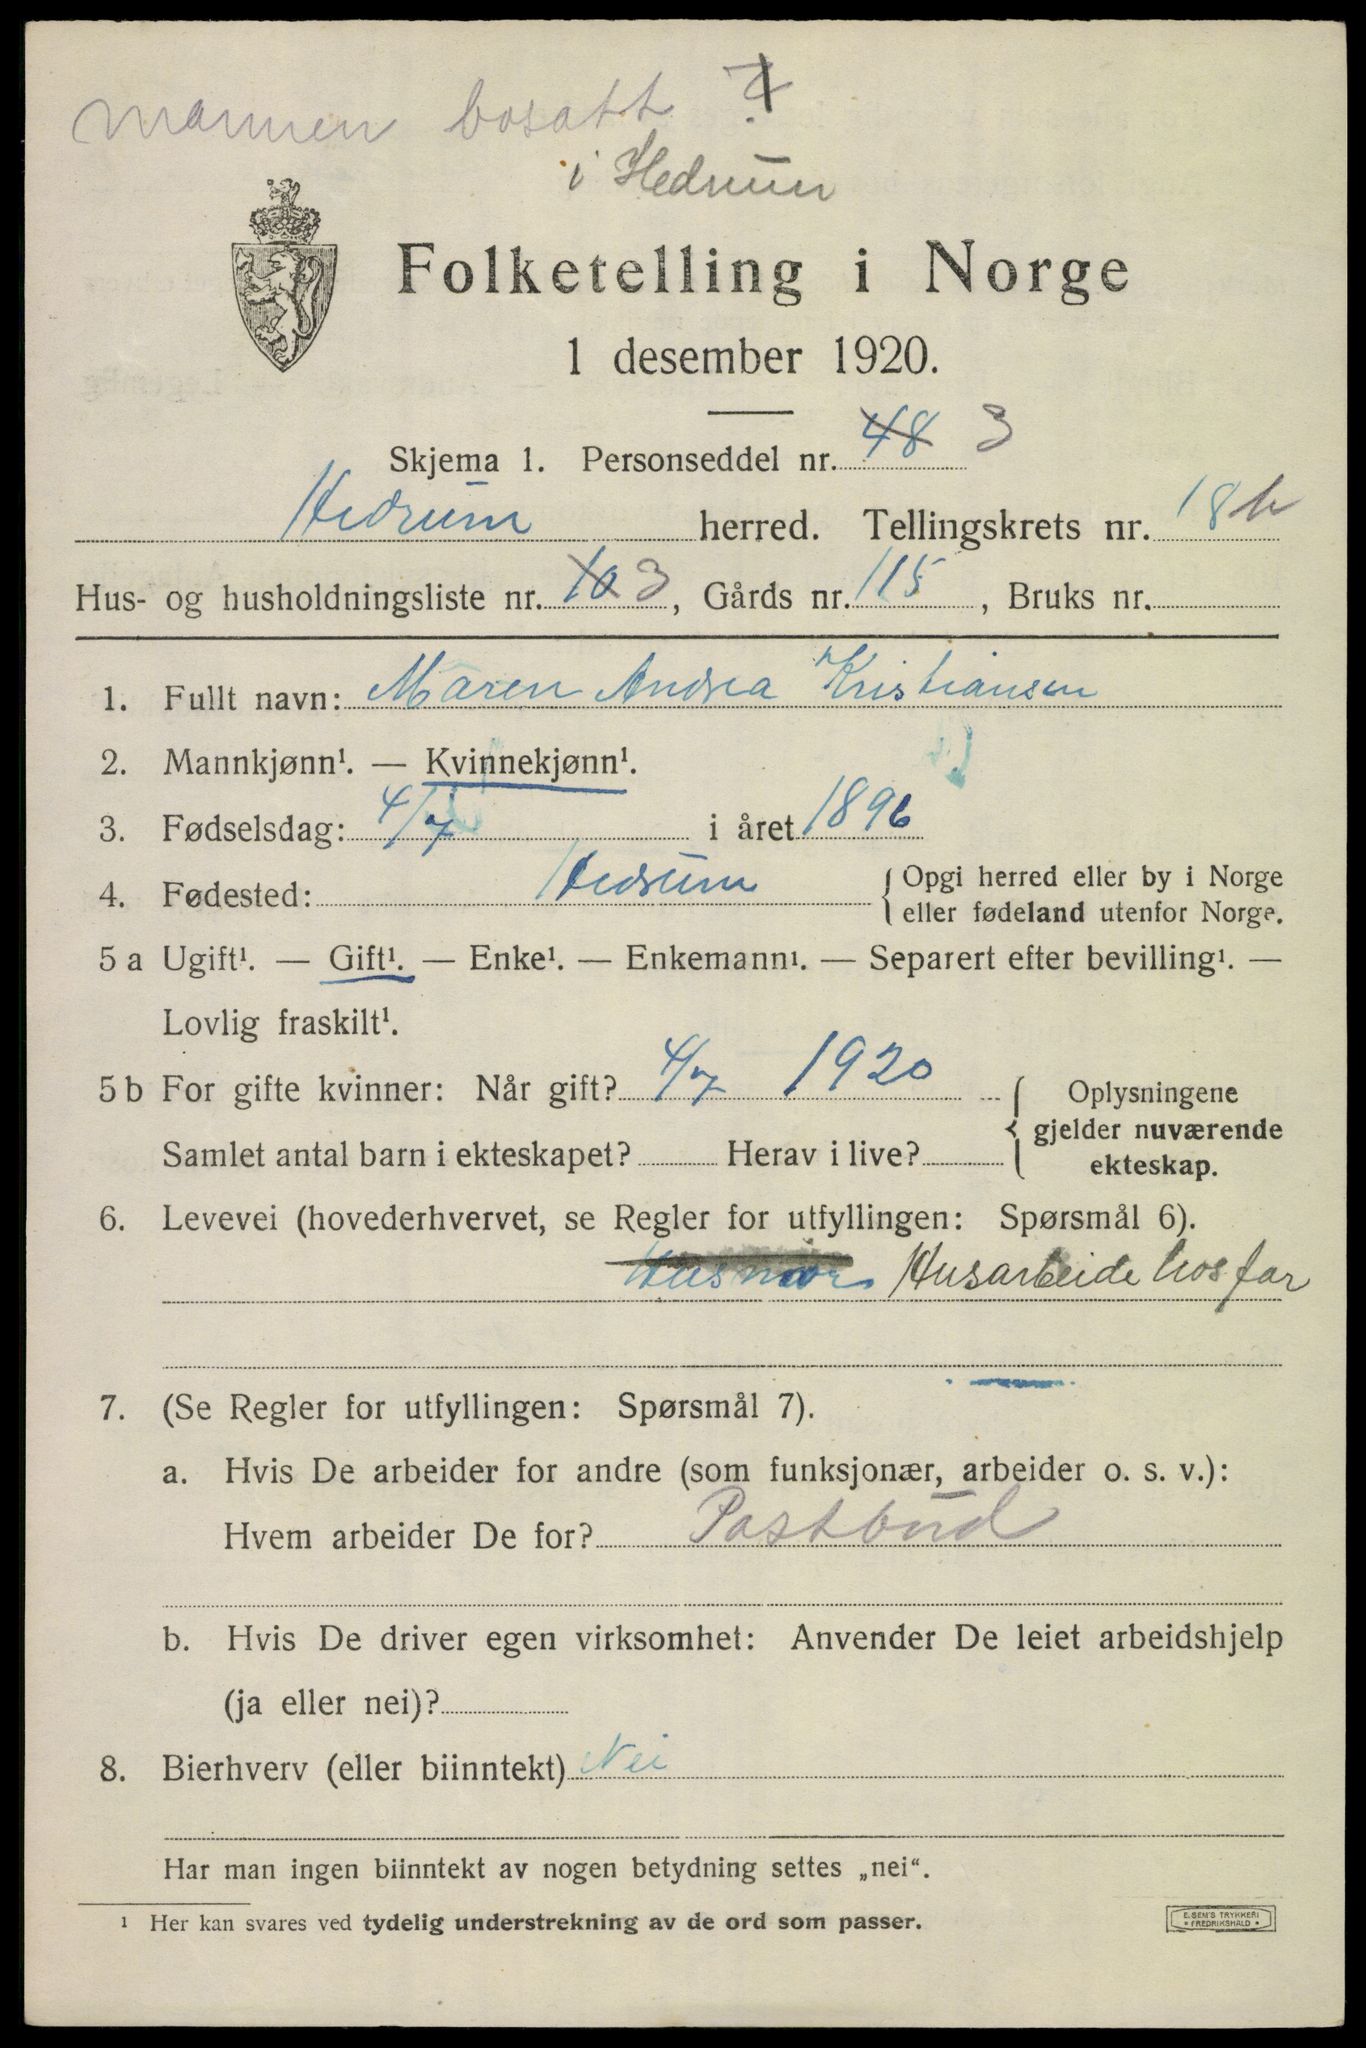 mannen bosatt ?
i Hedrum
Folketelling i Norge
1 desember 1920.
Skjema 1. Personseddel nr. 48 3
Hedrum herred. Tellingskrets nr. 18 b
Hus- og husholdningsliste nr. 10 3, Gårds nr. 115, Bruks nr.
1. Fullt navn: Maren Andrea Kristiansen
2. Mannkjønn¹. — Kvinnekjønn¹.
3. Fødselsdag: 4/7 i året 1896
4. Fødested: Hedrum { Opgi herred eller by i Norge
eller fødeland utenfor Norge.
5 a Ugift¹. — Gift¹. — Enke¹. — Enkemann¹. — Separert efter bevilling¹. —
Lovlig fraskilt¹.
5 b For gifte kvinner: Når gift? 4/7 1920
Samlet antal barn i ekteskapet? Herav i live?
{ Oplysningene
gjelder nuværende
ekteskap.
6. Levevei (hovederhvervet, se Regler for utfyllingen: Spørsmål 6).
Husmor Husarbeide hos far
7. (Se Regler for utfyllingen: Spørsmål 7).
a. Hvis De arbeider for andre (som funksjonær, arbeider o. s. v.):
Hvem arbeider De for? Postbud
b. Hvis De driver egen virksomhet: Anvender De leiet arbeidshjelp
(ja eller nei)?
8. Bierhverv (eller biinntekt) Nei
Har man ingen biinntekt av nogen betydning settes „nei“.
¹ Her kan svares ved tydelig understrekning av de ord som passer.
E. SEM'S TRYKKERI
* FREDRIKSHALD *